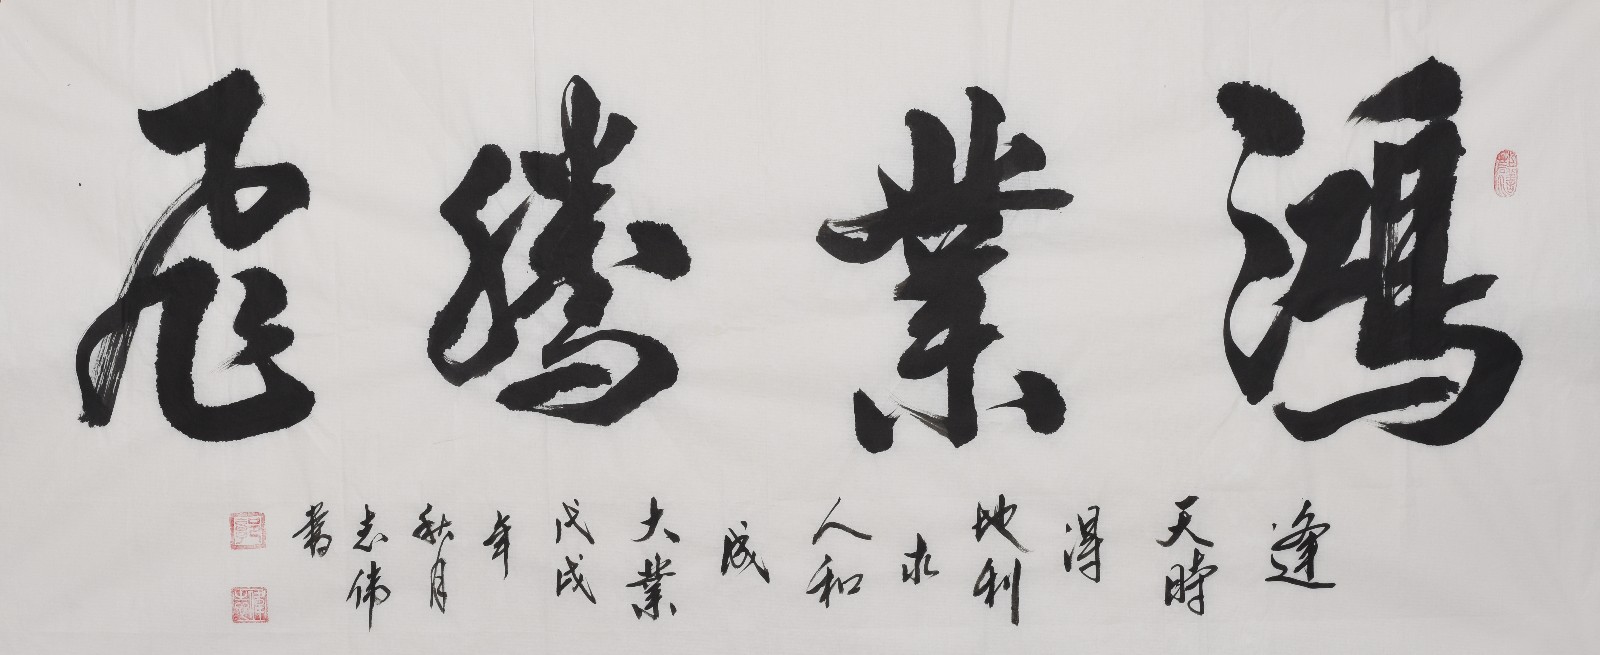 鴻業騰飛
逢
天時
得
地利
求
人和
成
大業
戊戌
年
秋月
志偉
書